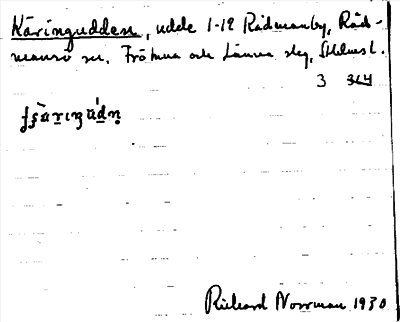 Käringudden, udde 1-12 Rådmanby, Råd-
mansö sn, Frötuna och Länna slg, Sthlms l.
3
Richard Norrman 1930